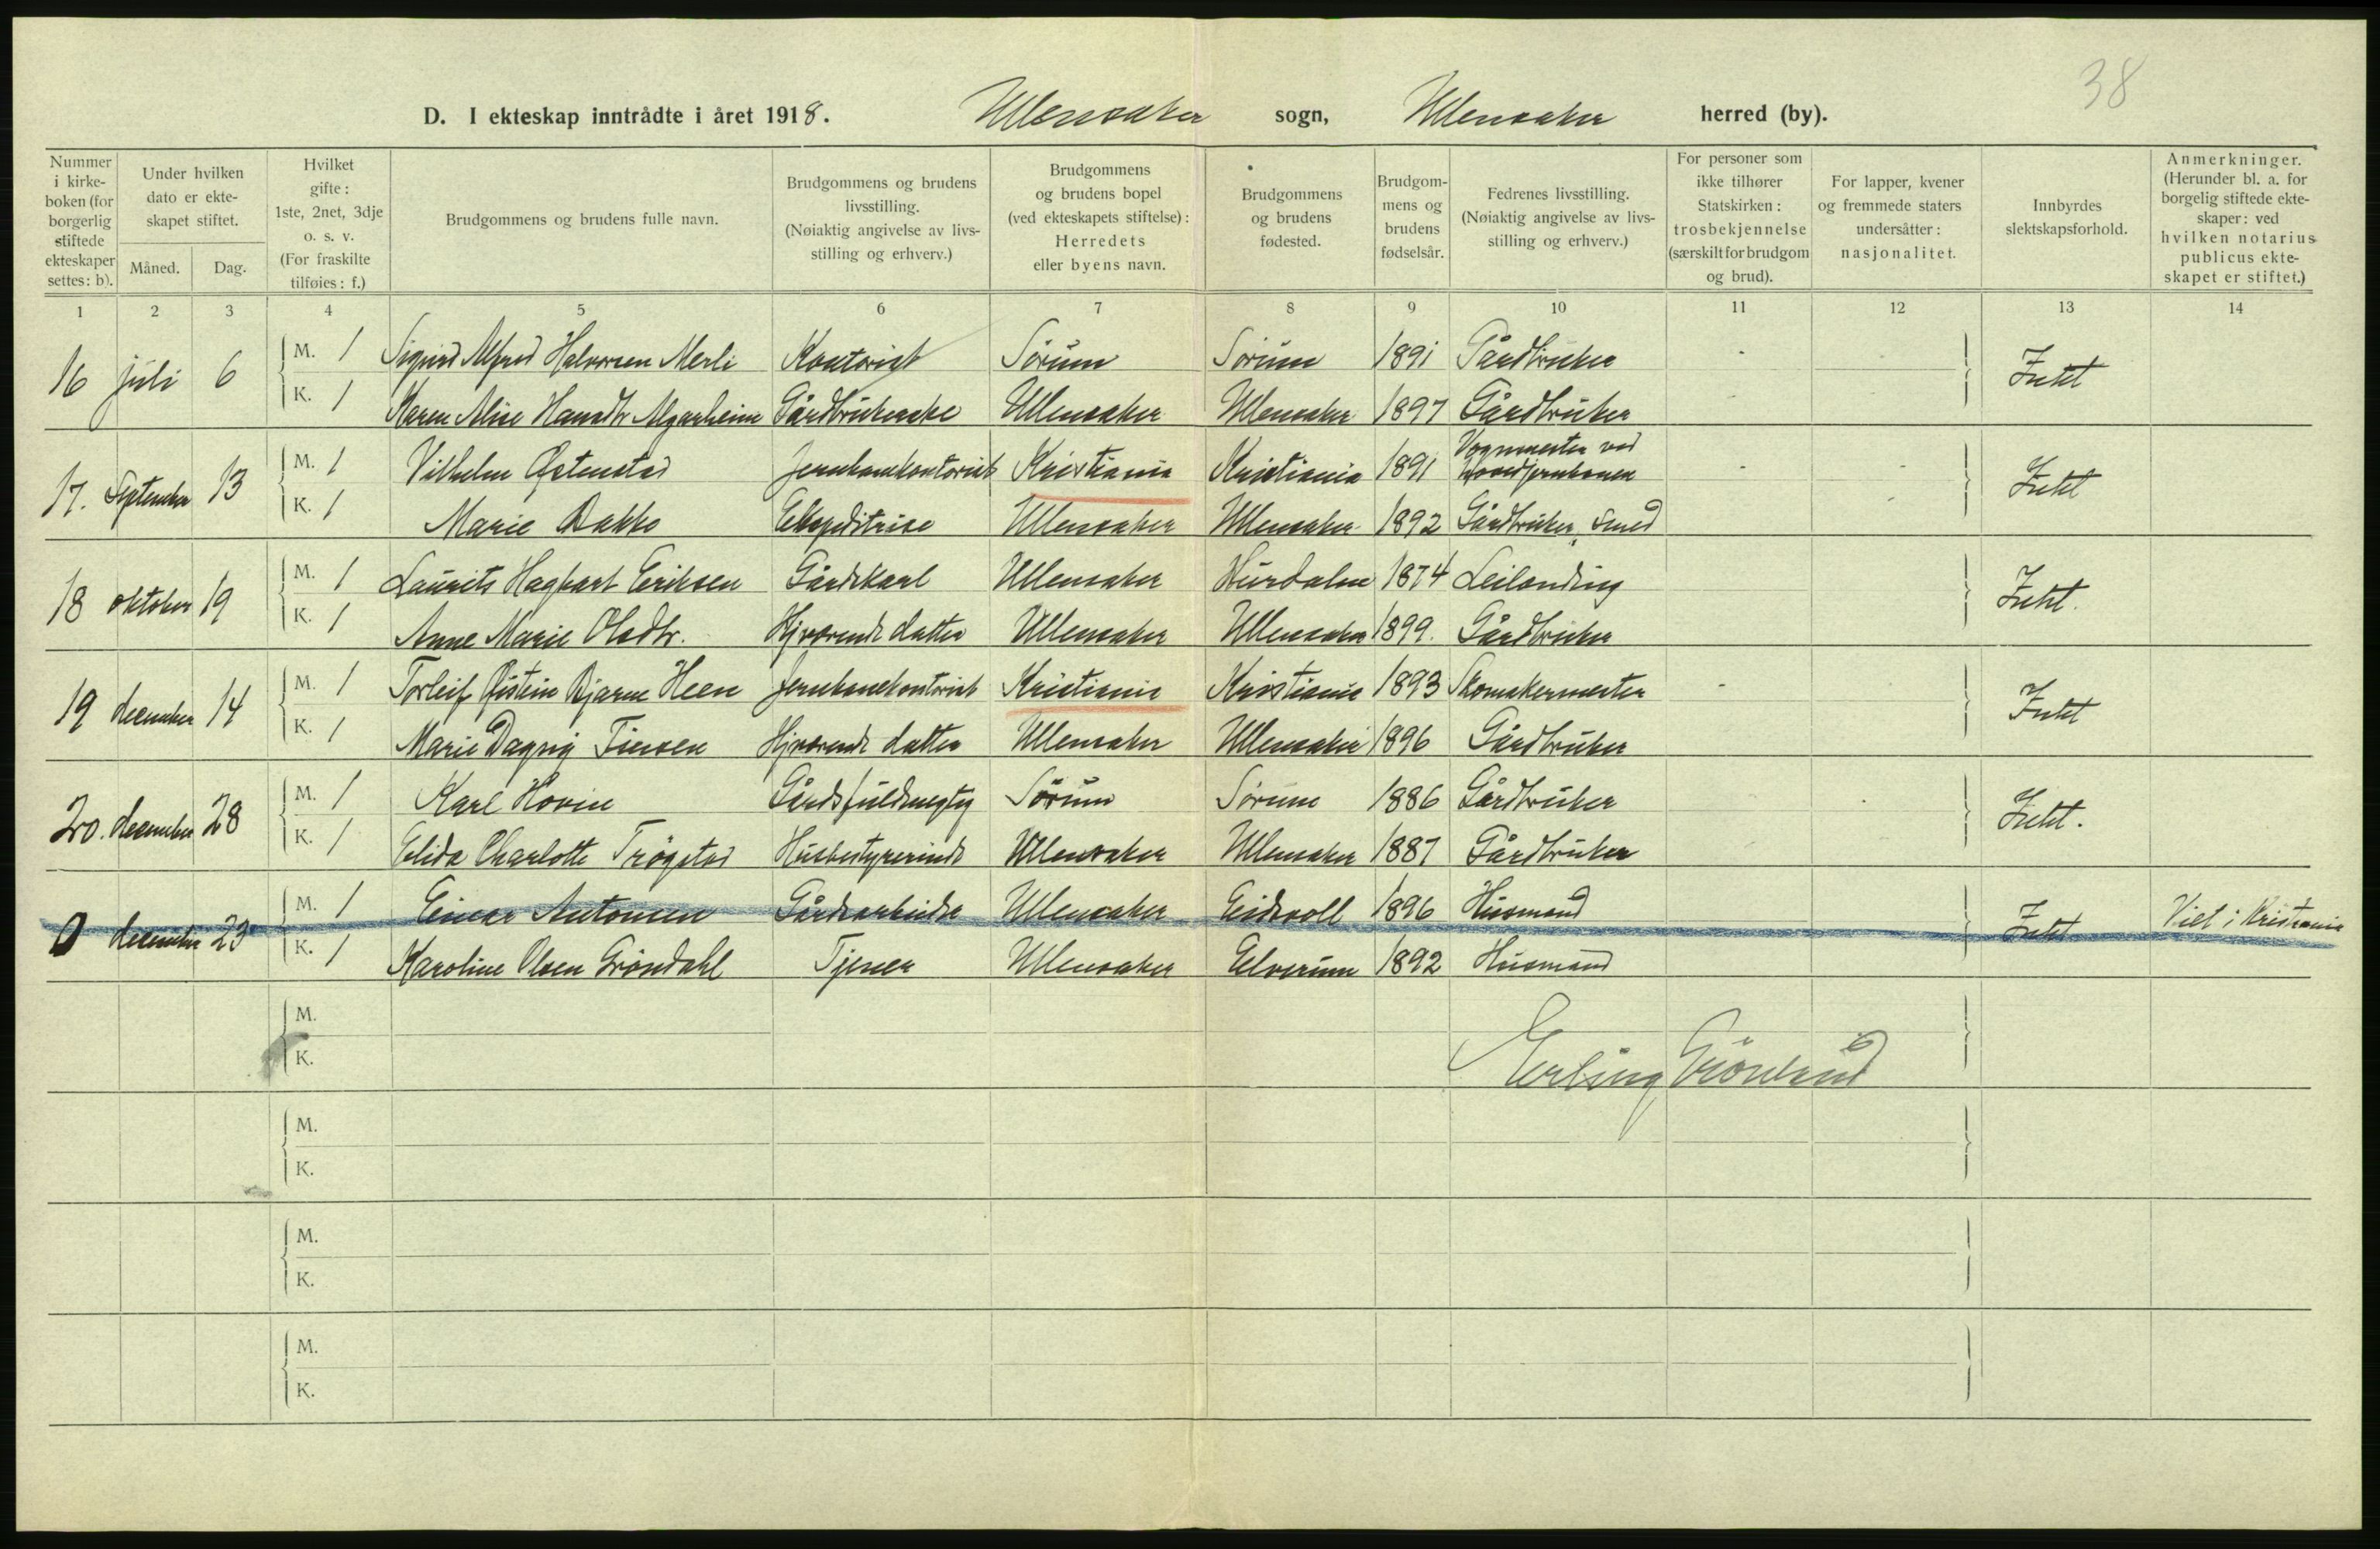 38
D. I ekteskap inntrådte i året 1918. Ullensaker sogn, Ullensaker herred (by).
Nummer i kirke-boken (for borgerlig stiftede ekteskaper settes: b).
Under hvilken dato er ekte-skapet stiftet.
Måned. Dag.
Hvilket gifte: 1ste, 2net, 3dje o. s. v. (For fraskilte tilføies: f.)
Brudgommens og brudens fulle navn.
Brudgommens og brudens livsstilling. (Nøiaktig angivelse av livs-stilling og erhverv.)
Brudgommens og brudens bopel (ved ekteskapets stiftelse): Herredets eller byens navn.
Brudgommens og brudens fødested.
Brudgom-mens og brudens fødselsår.
Fedrenes livsstilling. (Nøiaktig angivelse av livs-stilling og erhverv.)
For personer som ikke tilhører Statskirken: trosbekjennelse (særskilt for brudgom og brud).
For lapper, kvener og fremmede staters undersåtter: nasjonalitet.
Innbyrdes slektskapsforhold.
Anmerkninger. (Herunder bl. a. for borgelig stiftede ekte-skaper: ved hvilken notarius publicus ekte-skapet er stiftet.)
1 2 3 4 5 6 7 8 9 10 11 12 13 14
16 juli 6 M. 1 Sigurd Alfred Halvorsen Merli Kontorist Sørum Sørum 1891 Gårdbruker Intet
K. 1 Karen Alise Hansdtr Algarheim Gårdbrukerske Ullensaker Ullensaker 1897 Gårdbruker
17. September 13 M. 1 Vilhelm Østenstad Jernbanekontorist Kristiania Kristiania 1891 Vognmester ved hovedjernbanen Intet
K. 1 Marie Bakke Ekspeditrise Ullensaker Ullensaker 1892 Gårdbruker, smed
18 oktober 19 M. 1 Laurits Hagbart Eriksen Gårdskarl Ullensaker Hurdalen 1874 Leilending Intet.
K. 1 Anne Marie Olsdtr. Hjværende datter Ullensaker Ullensaker 1899. Gårdbruker
19 december 14 M. 1 Torleif Øistein Bjarne Heen Jernbanekontorist Kristiania Kristiania 1893 Skomakermester Intet
K. 1 Marie Dagny Finsen Hjværende datter Ullensaker Ullensaker 1896 Gårdbruker
20. december 28 M. 1 Karl Hovin Gårdsfuldmegtig Sørum Sørum 1886 Gårdbruker Intet.
K. 1 Elida Charlotte Trøgstad Husbestyrerinde Ullensaker Ullensaker 1887 Gårdbruker
0 december 23 M. 1 Einar Antonsen Gårdsarbeider Ullensaker Eidsvoll 1896 Husmand Intet Viet i Kristiania
K. 1 Karoline Olsen Grøndahl Tjener Ullensaker Elverum 1892 Husmand
M.
K.
Erling Grønland
M.
K.
M.
K.
M.
K.